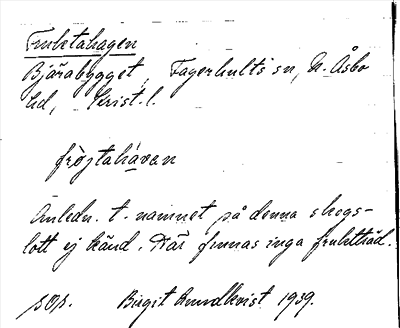 Fruktahagen
Bjärabygget, Fagerhults sn, N. Åsbo
hd, Krist. l.
frögtahávan
Anledn. t. namnet på denna skogs-
lott ej känd. Där finnas inga fruktträd.
sop. Birgit Lundkvist 1939.